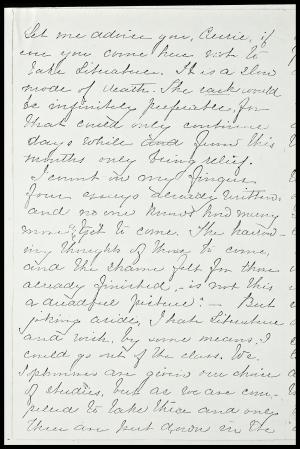 Let me advise you, Carrie, if
ever you come here not to
take Literature. It is a slow
mode of death. The rack would
be infinitely preferable, for
that could only continue
days while and from this
months only bring relief.
I count on my fingers
four essays already written
and no one knows how many
more yet to come. The harrow-
ing thoughts of those to come,
and the shame felt for those
already finished, - is not this
a dreadful picture? - But
joking aside, I hate Literature
and wish, by some means, I
could go out of the class. We
Sophmores are given our choice
of studies, but as we are com-
pelled to take three and only
three are put down in the